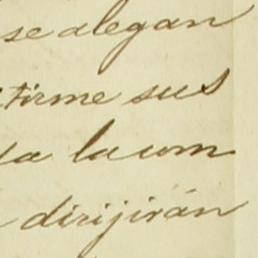 se alegan
firme sus
la com
dirijirán